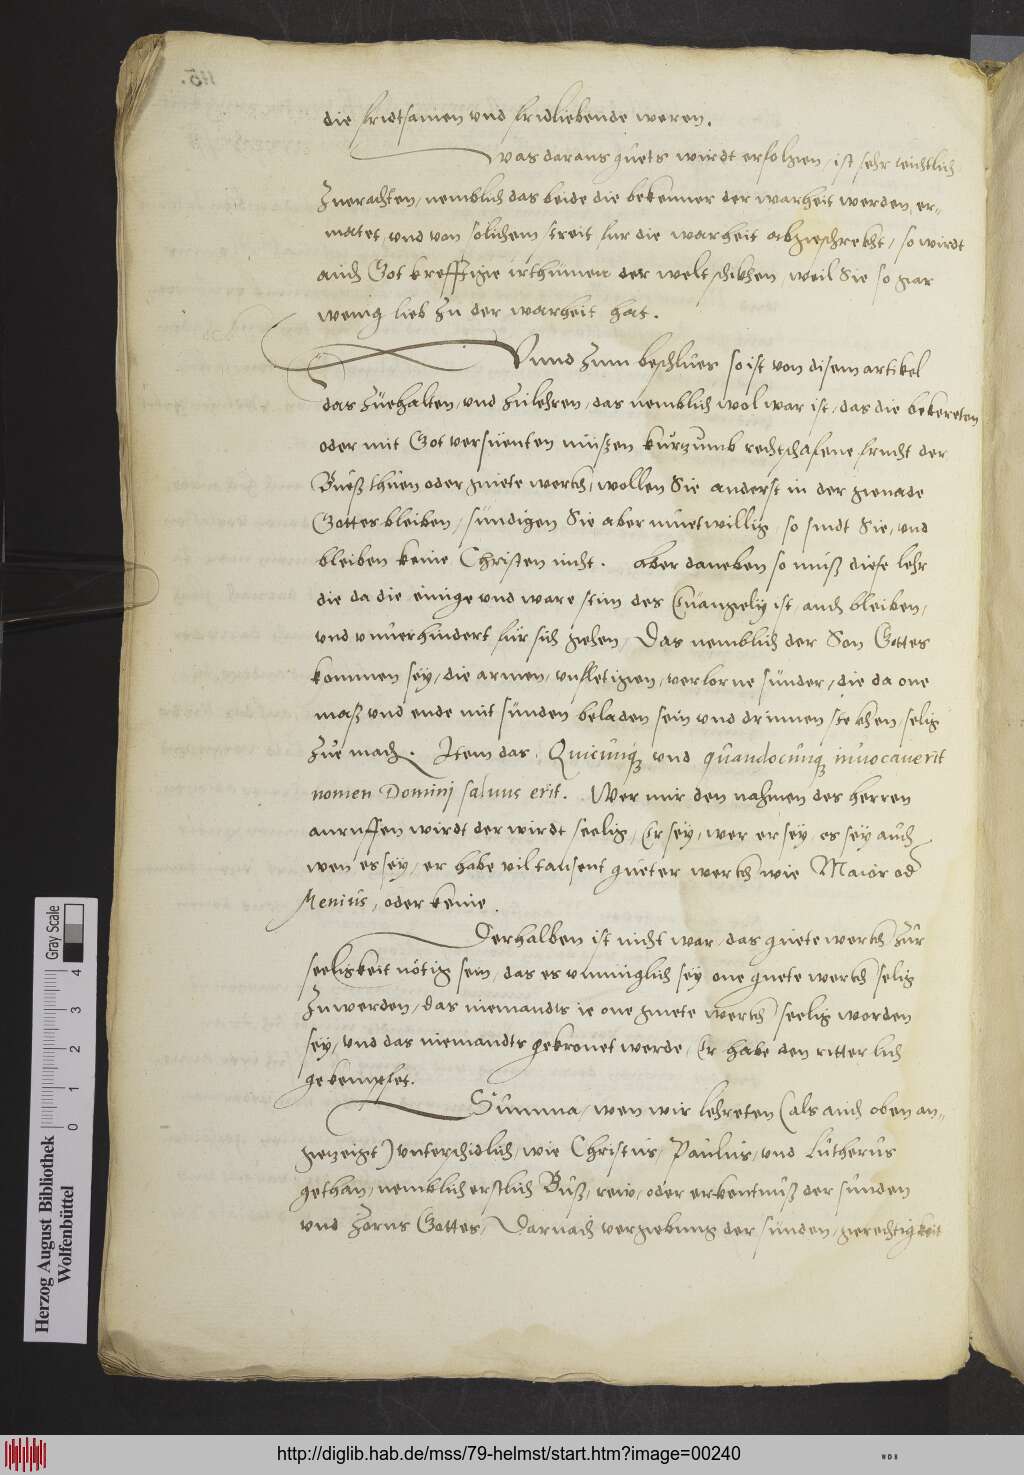 die fridtsamen und fridliebende weren.
was daraus guets wirdt erfolgen, ist sehr leichtlich
Zuerachten, nemblich das beide die bekenner der warheit werden er-
matet und von solichem streit fur die warheit abgeschrekht, so wirdt
auch Got krefftige irthumen der welt schikhen, weil Sie so gar
wenig lieb zu der warheit hat.
Unnd zum beschlues so ist von disem artikel
das zuehalten, und zulehren, das nemblich wol war ist, das die bekereten
oder mit Got versüenten müßen kurtzumb rechtschafene frucht der
Bueß thuen oder guete werch, wollen Sie anderst in der genade
Gottes bleiben, sündigen Sie aber muetwillig so sindt Sie, und
bleiben keine Christen nicht. aber daneben so muß diese lehr
die da die einige und ware stim des Euangelij ist, auch bleiben,
und unuerhindert für sich gehen, Das nemblich der Son Gottes
kommen sey, die armen, unfletigen, verlorne sünder, die da one
maß und ende mit sünden beladen sein und drinnen stekhen, selig
zue mach. Item das Quicunq und quandocunq inuocauerit
nomen Dominj saluus erit. Wer nur den nahmen des herren
anruffen wirdt der wirdt seelig, Er sey, wer er sey, es sey auch
wen es sey, er habe vil tausent gueter werch wie Maior od
Menius, oder keine.
Derhalben ist nicht war, das guete werch zur
seeligkeit nötig sein, das es unmüglich sey one guete werch selig
zuwerden, das niemandts ie one guete werch seelig worden
sey, und das niemandts gekronet werde, Er habe den ritterlich
gekempfet.
Summa, wen wir lehreten (als auch oben an-
gezeigt) unterschidlich, wie Christus, Paulus, und Lutherus
gethan, nemblich erstlich Buß, rew, oder erkentnuß der sunden
und Zorns Gottes, Darnach vergebung der sünden, gerechtigkeit
Herzog August Bibliothek
Wolfenbüttel
Gray Scale
0 1 2 3 4
http://diglib.hab.de/mss/79-helmst/start.htm?image=00240
WDB